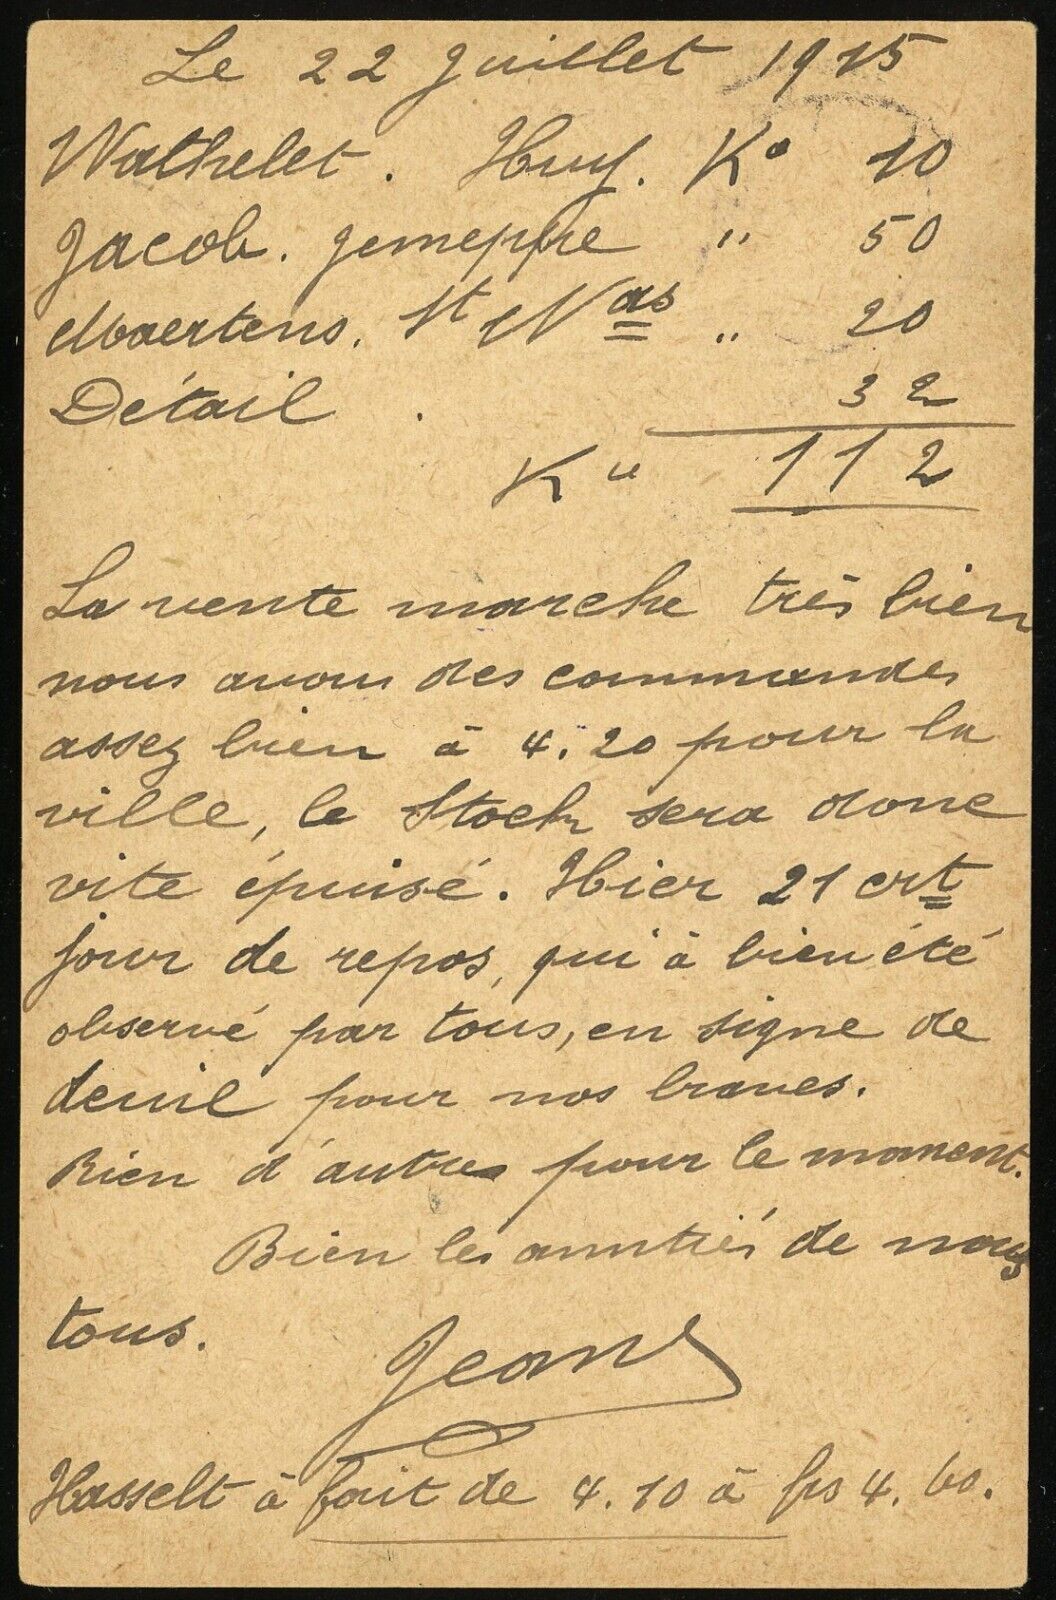 Le 22 Juillet 1915
Wathelet. Huy. Kº 10
Jacob. Jemeppe " 50
Maertens. St Nas " 20
Détail . 32
Kº 112
La vente marche très bien
nous avons des commandes
assez bien à 4.20 pour la
ville, le Stock sera donc
vite épuisé. Hier 21 crt
jour de repos, qui à bien été
observé par tous, en signe de
deuil pour nos braves.
Rien d'autres pour le moment.
Bien les amitiés de nous
tous.
Jean
Hasselt à fait de 4.10 à frs 4.60.